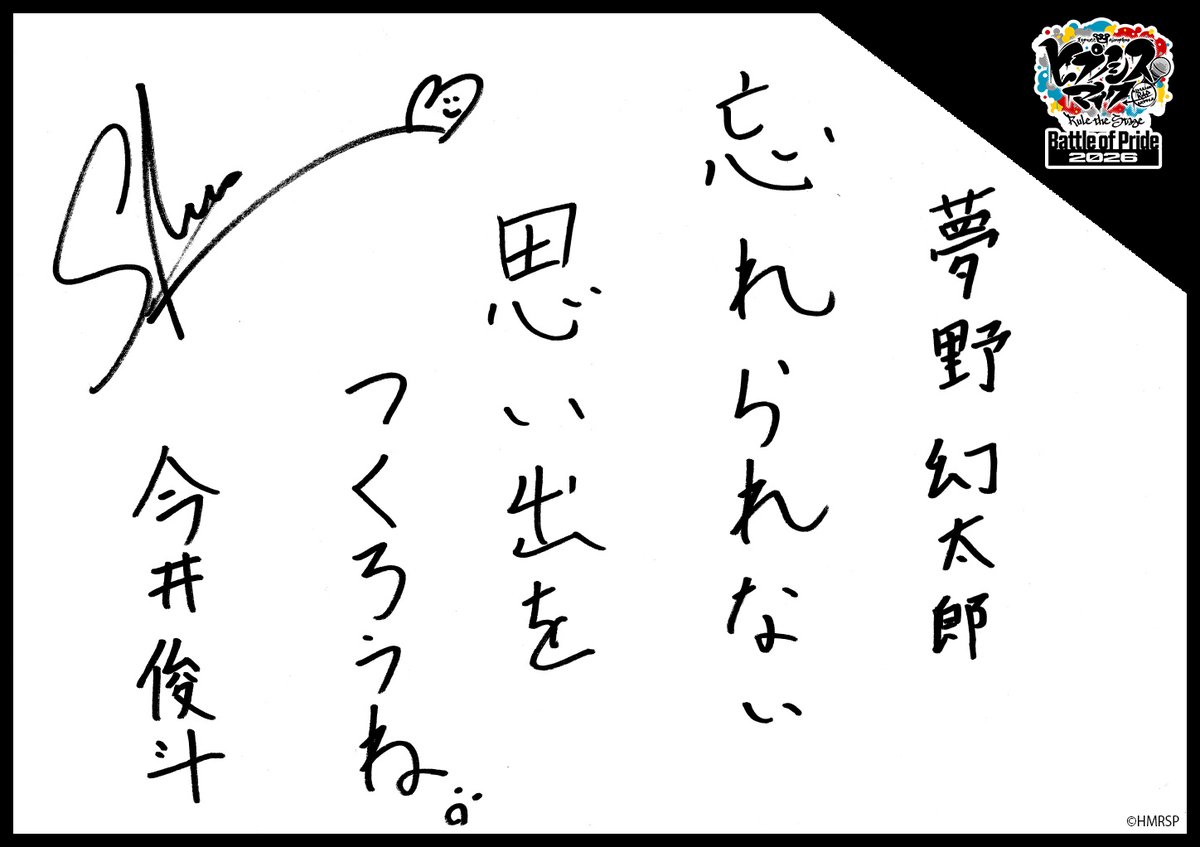 ヒプノシス
マイク
Rule the Stage
Battle of Pride
2026
夢野 幻太郎
忘れられない
思い出を
つくろうね。
今井俊斗
©HMRSP